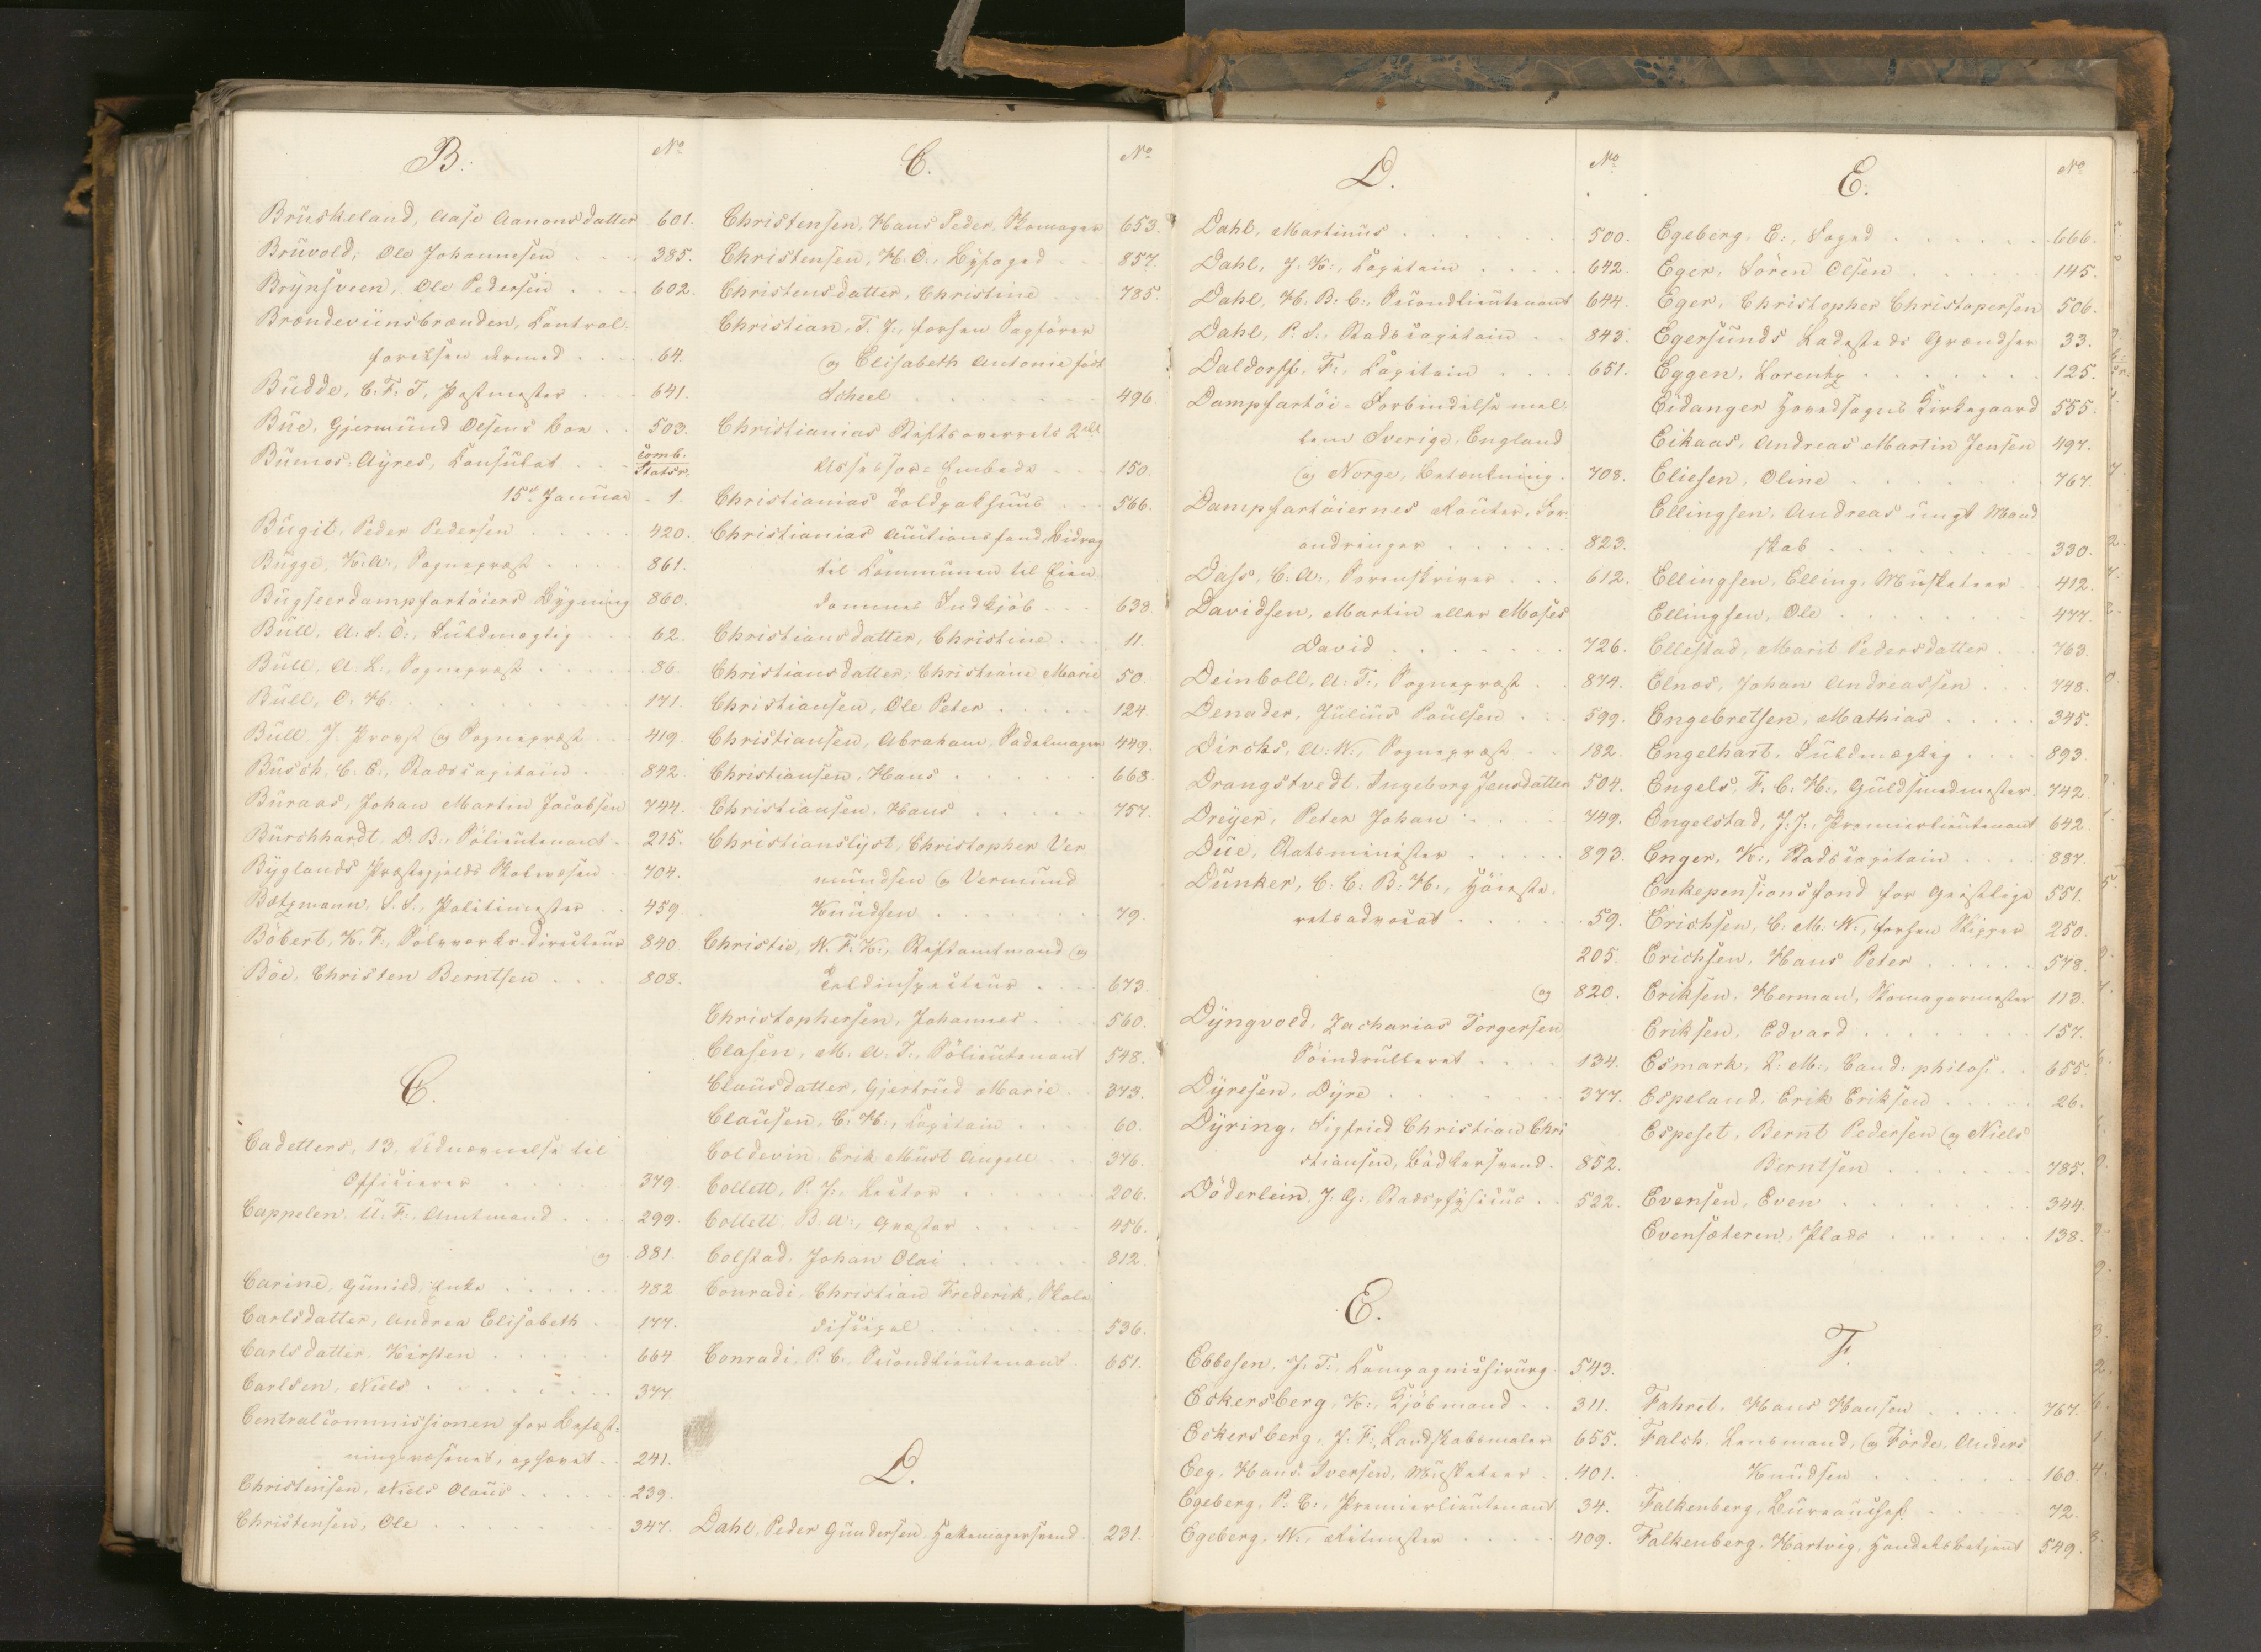 B.
No
Bruskeland, Aase Aanonsdatter 601.
Bruvold, Ole Johannesen 385.
Brynsveen, Ole Pedersen 602.
Brændeviinsbrænden, Kontrol-
forelsen dermed 64.
Budde, C. F. T., Postmester 641.
Bue, Gjermund Olsens Con 503.
Buenos-Ayres, Konsulat Comb. Statsr.
15de Januar 1.
Bugit, Peder Pedersen 420.
Bugge, K. A., Sognepræst 861.
Bugseerdampfartöiers Bygning 860.
Bull, A. S. O., Fuldmægtig 62.
Bull, A. L., Sognepræst 86.
Bull, O. H. 171.
Bull, J. Provst og Sognepræst 419.
Busch, C. E., Stadscapitain 842.
Buraas, Johan Martin Jacobsen 744.
Burchhardt, D. B., Sölieutenant 215.
Byglands Præstegjelds Skolvæsen 704.
Bætzmann, S. S., Politimester 459.
Böbert, K. F., Sölvværks-Directeur 840.
Böe, Christen Berntsen 808.
C.
Cadetters, 13, Udnævnelse til
Officierer 379.
Cappelen, U. F., Amtmand 299.
og 881.
Carine, Gunild, Enke 482
Carlsdatter, Andrea Elisabeth 177.
Carlsdatter, Kirsten 664
Carlsen, Niels 377.
Centralcommissionen for Befæst-
ningsvæsenet, ophævet 241.
Christensen, Niels Olaus 239.
Christensen, Ole 347.
C.
No
Christensen, Hans Peder, Skomager 653.
Christensen, H. O., Byfoged 857.
Christensdatter, Christine 785.
Christian, T. J., forhen Sagförer
og Elisabeth Antonie född
Scheel 496.
Christianias Stiftsoverrets 2det
Assessor-Embede 150.
Christianias Toldpakhuus 566.
Christianias Auctionsfond, Bidrag
til Kommunen til Eien-
dommes Indkjöb 638.
Christiansdatter, Christine 11.
Christiansdatter, Christiane Marie 50.
Christiansen, Ole Peter 124.
Christiansen, Abraham, Sadelmager 449.
Christiansen, Hans 668.
Christiansen, Hans 757.
Christianslyst, Christopher Ver
mundsen og Vermund
Knudsen 79.
Christie, W. F. K., Stiftamtmand og
Toldinspecteur 673.
Christophersen, Johannes 560.
Clasen, M. A. T., Sölieutenant 548.
Clausdatter, Gjertrud Marie 373.
Clausen, C. H., Kapitain 60.
Coldevin, Erik Must Angell 376.
Collett, P. J., Lector 206.
Collett, B. A., Græster 456.
Colstad, Johan Olai 812.
Conradi, Christian Frederik, Skole
discipel 536.
Conradi, P. C., Secondlieutenant 651.
D.
Dahl, Peder Gundersen, Hattemagersvend 231.
D.
No
Dahl, Martinus 500.
Dahl, J. K., Kapitain 642.
Dahl, H. B. C., Secondlieutenant 644.
Dahl, P. S., Stadscapitain 843.
Daldorff, F., Kapitain 651.
Dampfartöi-Forbindelse mel-
lem Sverige, England
og Norge, Betænkning 708.
Dampfartöiernes Router, For-
andringer 823.
Dass, C. A., Sorenskriver 612.
Davidsen, Martin eller Moses
David 726.
Deinboll, A. T., Sognepræst 874.
Denader, Julius Poulsen 599.
Dircks, A. W., Sognepræst 182.
Drangstvedt, Ingeborg Jensdatter 504.
Dreyer, Peter Johan 749.
Due, Statsminister 893.
Dunker, C. C. B. H., Höieste-
retsadvocat 59.
205.
og 820.
Dyngvold, Zacharias Torgersen,
Söindrulleret 134.
Dyresen, Dyre 377.
Dyring, Sigfried Christian Chri
stiansen, Bödkersvend 852.
Döderlein, J. G., Stadsphysicus 522.
E.
Ebbesen, J. T., Kompagnichirurg 543.
Eckersberg, K., Kjöbmand 311.
Eckersberg, J. F., Landskabsmaler 655.
Eeg, Hans Iversen, Musketeer 401.
Egeberg, P. C., Premierlieutenant 34.
Egeberg, W., Ritmester 409.
E.
No
Egeberg, E., Foged 666.
Eger, Sören Olsen 145.
Eger, Christopher Christopersen 506.
Egersunds Ladesteds Grændser 33.
Eggen, Lorentz 125.
Eidanger Hovedsogns Kirkegaard 555.
Eikaas, Andreas Martin Jensen 497.
Eliesen, Oline 767.
Ellingsen, Andreas ungt Mand
skab 330.
Ellingsen, Elling, Musketeer 412.
Ellingsen, Ole 477.
Ellestad, Marit Pedersdatter 763.
Elnæs, Johan Andreassen 748.
Engebretsen, Mathias 345.
Engelhart, Fuldmægtig 893.
Engels, F. C. H., Guldsmedmester 742.
Engelstad, J. J., Premierlieutenant 642.
Enger, K., Stadscapitain 887.
Enkepensionsfond for Geistlige 551.
Erichsen, C. M. W., forhen Skipper 250.
Erichsen, Hans Peter 578.
Eriksen, Herman, Skomagermester 113.
Eriksen, Edvard 157.
Esmark, L. M., Cand. philos. 655.
Espeland, Erik Eriksen 26.
Espeset, Bernt Pedersen og Niels
Berntsen 785.
Evensen, Even 344.
Evensæteren, Plads 138.
F.
Fahret, Hans Hansen 767.
Falch, Lensmand, og Förde, Anders
Knudsen 160.
Falkenberg, Bureauchef 72.
Falkenberg, Hartvig, Handelsbetjent 549.